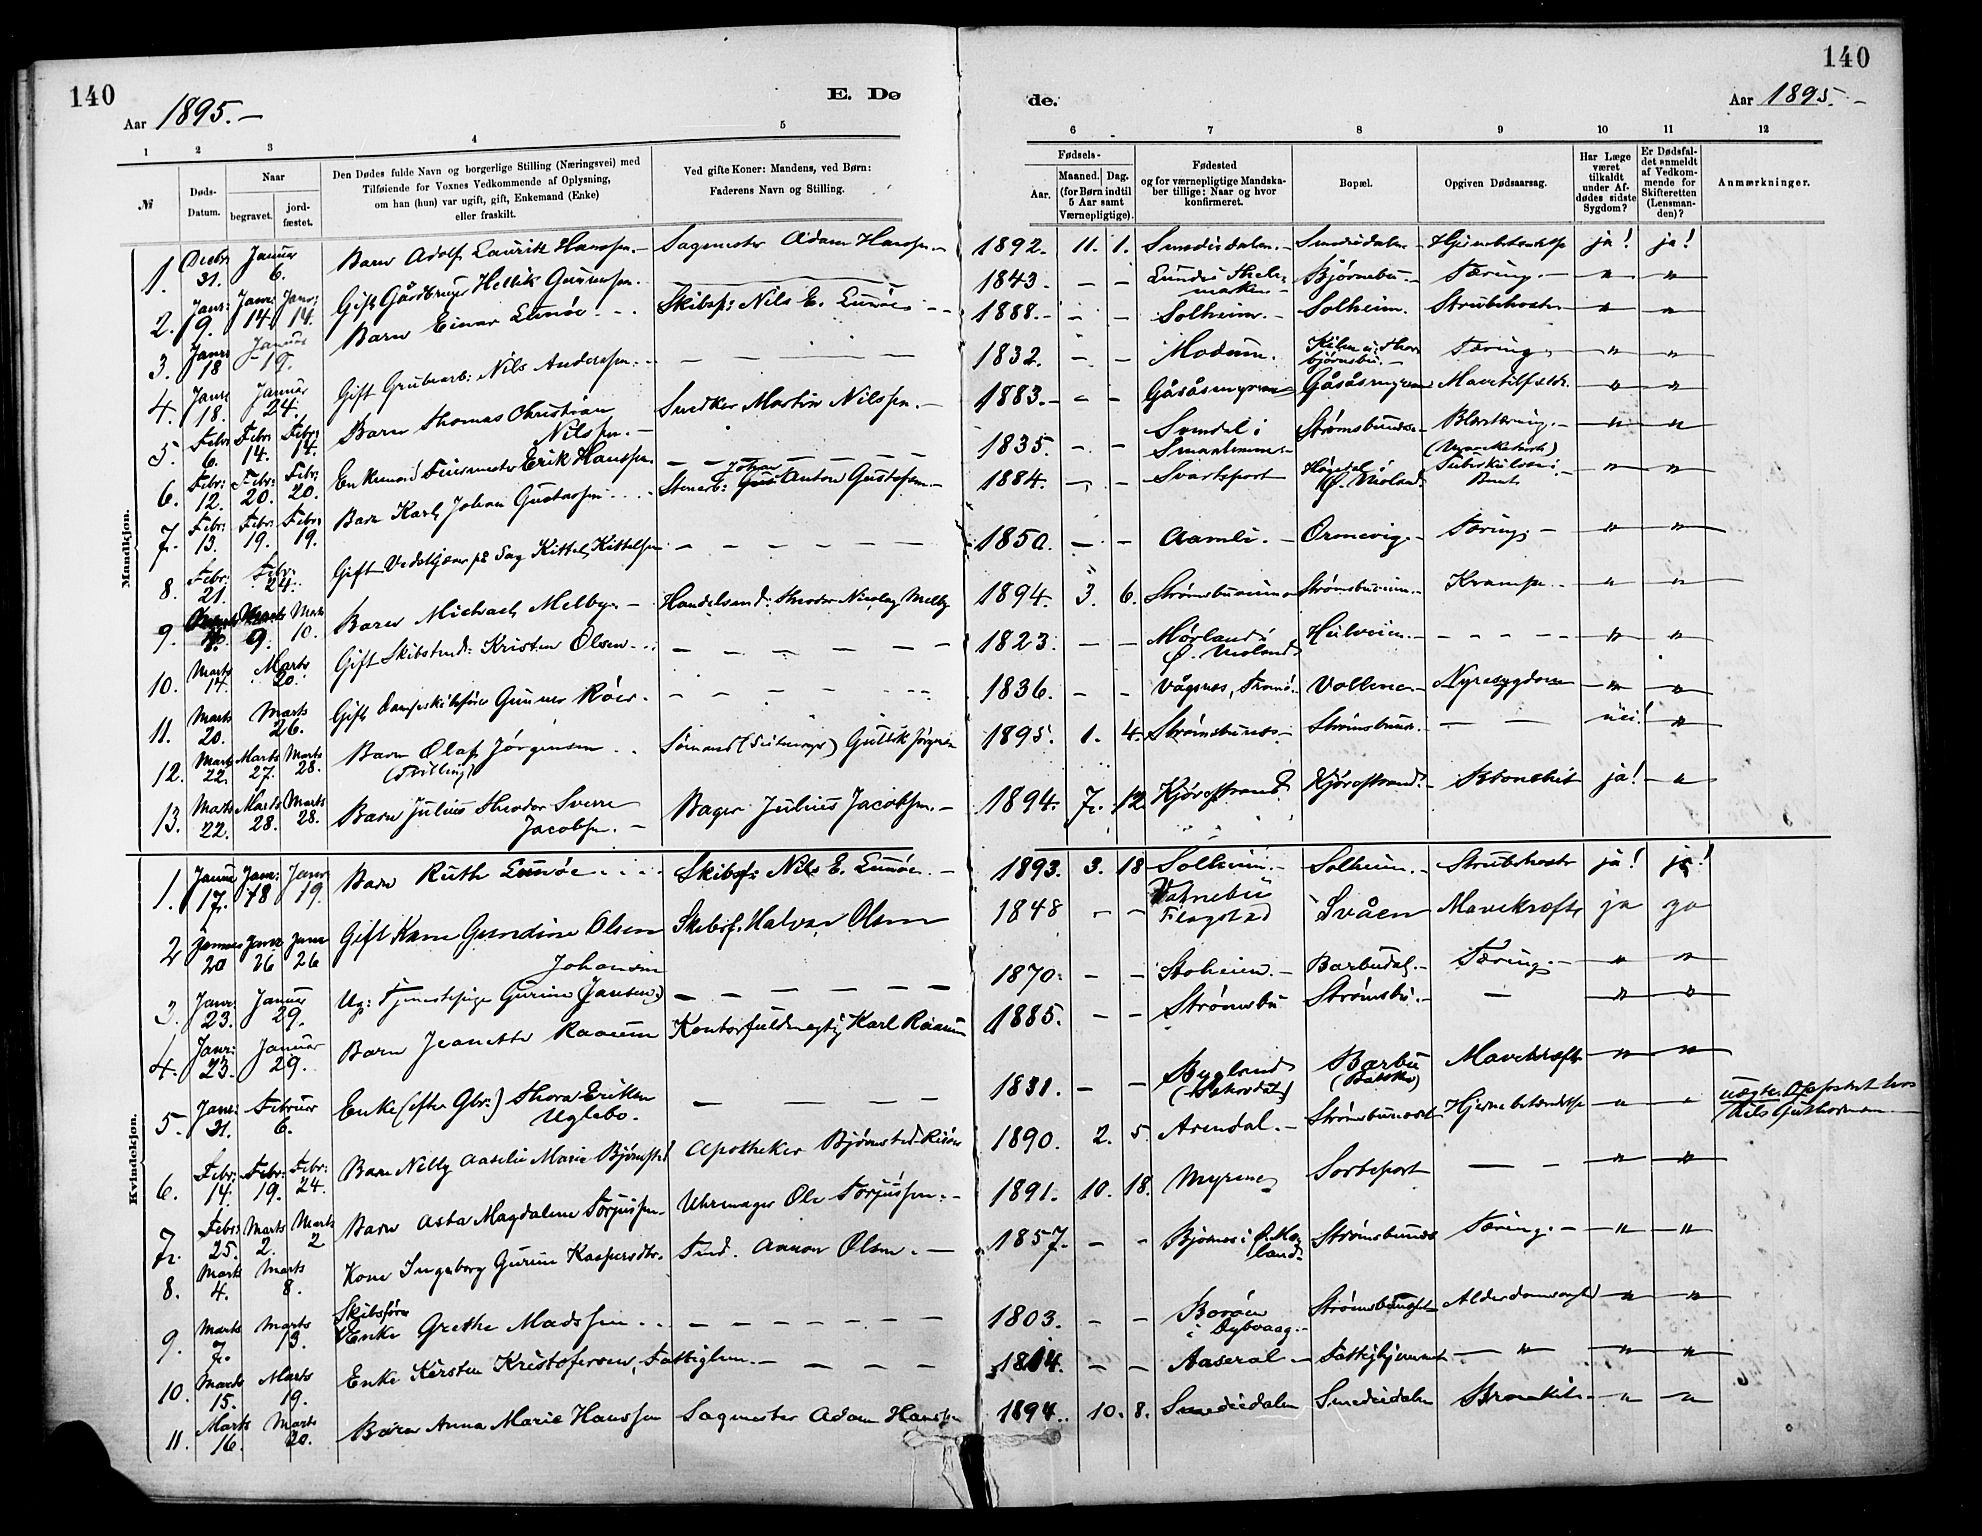 140
140
Aar 1895.-
E. Dø
de.
Aar 1895.-
1 2 3 4 5 6 7 8 9 10 11 12
№
Døds-Datum.
Naar
begravet.
jord-fæstet.
Den Dødes fulde Navn og borgerlige Stilling (Næringsvei) med
Tilføiende for Voxnes Vedkommende af Oplysning,
om han (hun) var ugift, gift, Enkemand (Enke)
eller fraskilt.
Ved gifte Koner: Mandens, ved Børn:
Faderens Navn og Stilling.
Fødsels-
Aar.
Maaned.
Dag.
(for Børn indtil
5 Aar samt
Værnepligtige).
Fødested
og for værnepligtige Mandska-
ber tillige: Naar og hvor
konfirmeret.
Bopæl.
Opgiven Dødsaarsag.
Har Læge
været
tilkaldt
under Af-
dødes sidste
Sygdom?
Er Dødsfal-
det anmeldt
af Vedkom-
mende for
Skifteretten
(Lensman-
den)?
Anmærkninger.
Mandkjøn.
1. Decbr 31. Januar 6. Barn Adolf Lauritz Hanssen.- Sagmester Adam Hanssen.- 1892. 11. 1. Smededalen.- Smededalen- ja! ja!
2. Janr: 9. Janr 14. Janr: 14. Gift Gårdbruger Hellik Gunnersen.- 1843. - - Tæring.- " "
3. Janr 18 Januar 19. Barn Einar Lunøe. Skibsf: Nils E. Lunøe 1888.- - - Solheim.- Solheim. Strubehoste. " "
4. Janr 18. Januar 24. Gift Grubearb: Nils Anderssen. 1832. - - Modum. Tæring. " "
5. Febr 6. Febr: 14. Febr: 14. Barn Thomas Christian Nilssen.- Snedker Martin Nilssen.- 1883.- - - Gåsåsmyrene Gåsåsmyrene " "
6. Febr: 12. Febr: 20. Febr: 20. Enkemand Erik Hanssen. 1835. - - " "
7. Febr: 13. Febr: 19. Febr: 19. Barn Karl Johan Gustafsen Stenarb: Johan Anton Gustafsen.- 1884. - - Svartsport Ø. Moland " "
8. Febr: 21. Febr: 24. Gift på Sag Kittel Kittelsen 1850. - - Aamli.- Ornevig.- Tæring.- " "
9. 9. Marts 10. Barn Michael Melbye.- Handelsmd: Theodor Nicolay Melby 1894. 3. 6. Krampe.- " "
10. Marts 14. Marts 20. Gift Skibstmd: Kristen Olsen 1823. - - Mørland i Ø. Moland - - - - " "
11. Marts 20. Marts 26. Gift Dampskibsfører Gunner Røer. 1836. - - Vågsnes, Tromø. Vollene- Nyresygdom " "
12. Marts 22. Marts 27. Marts 28. Barn Olaf Jørgensen (Tvilling) Sømand Gullik Jørgensen 1895. 1. 4. Strømsbunes- Strømsbunes.- - - nei! "
13. Marts 22. Marts 28. Marts 28. Barn Julius Theodor Sverre Jacobsen.- Bager Julius Jacobsen.- 1894. 7. 12 Kjørsstrand Kjørsstrand.- Bronchit ja! "
Kvindekjøn.
1. Januar 17. Janr: 18 Janr 19. Barn Ruth Lunøe Skibsf: Nils E. Lunøe.- 1893. 3. 18 Solheim.- Solheim.- Strubehoste ja! ja!
2 Januar 20 Janr 26 Janr 26 Gift Kone Gundine Olsen Skibsf. Halvor Olsen 1848 - - Flagstad Svåen Mavekræft ja ja
3. Janr: 23. Januar 29. Ug: Tjenestepige Gurine Johansen (Jansen) 1870. - - Stoheien.- Barbudal.- Tæring.- " "
4. Janr: 23. Januar 29. Barn Jeanette Raaum Kontorfuldmægtig Karl Raaum 1885. - - Strømsbu Strømsbu.- - " "
5. Janr: 31. Februar 6. Enke (efter Gbr.) Thora Eriksen Uglebo. 1831. - - Bygland Barbu Mavekræft " "
6. Febr: 14. Febr: 19. Febr: 24. Barn Nelly Aaselie Marie Bjørnstad Apotheker Bjørnstad Risør 1890. 2. 5. Arendal.- Hjernebetændelse " " uægte. Opfostret hos Nils Guthormsen.
7. Febr: 25. Marts 2. Marts 2 Barn Asta Magdalene Torjussen- Uhrmager Ole Torjussen.- 1891. 10. 18. Myrene Sortsport - - " "
8. Marts 4. Marts 8. Kone Ingeborg Gurine Kaspersdtr. Tmd. Annon Olsen.- 1857. - - Bjønnes i Ø. Moland. Strømsbunes Tæring.- " "
9. Marts 7. Marts 13. Skibsfører Enke Grethe Madssen 1803. - - Borøen i Dybvaag.- Alderdomssvaghed " "
10. Marts 15. Marts 19. Enke Kirsten Kristofersen, Fattiglem.- 1814. - - Aaseral- Fattighjemmet " " "
11. Marts 16. Marts 20. Barn Anna Marie Hanssen Sagmester Adam Hanssen 1894. 10. 8. Smededalen Smededalen Bronchit- " "